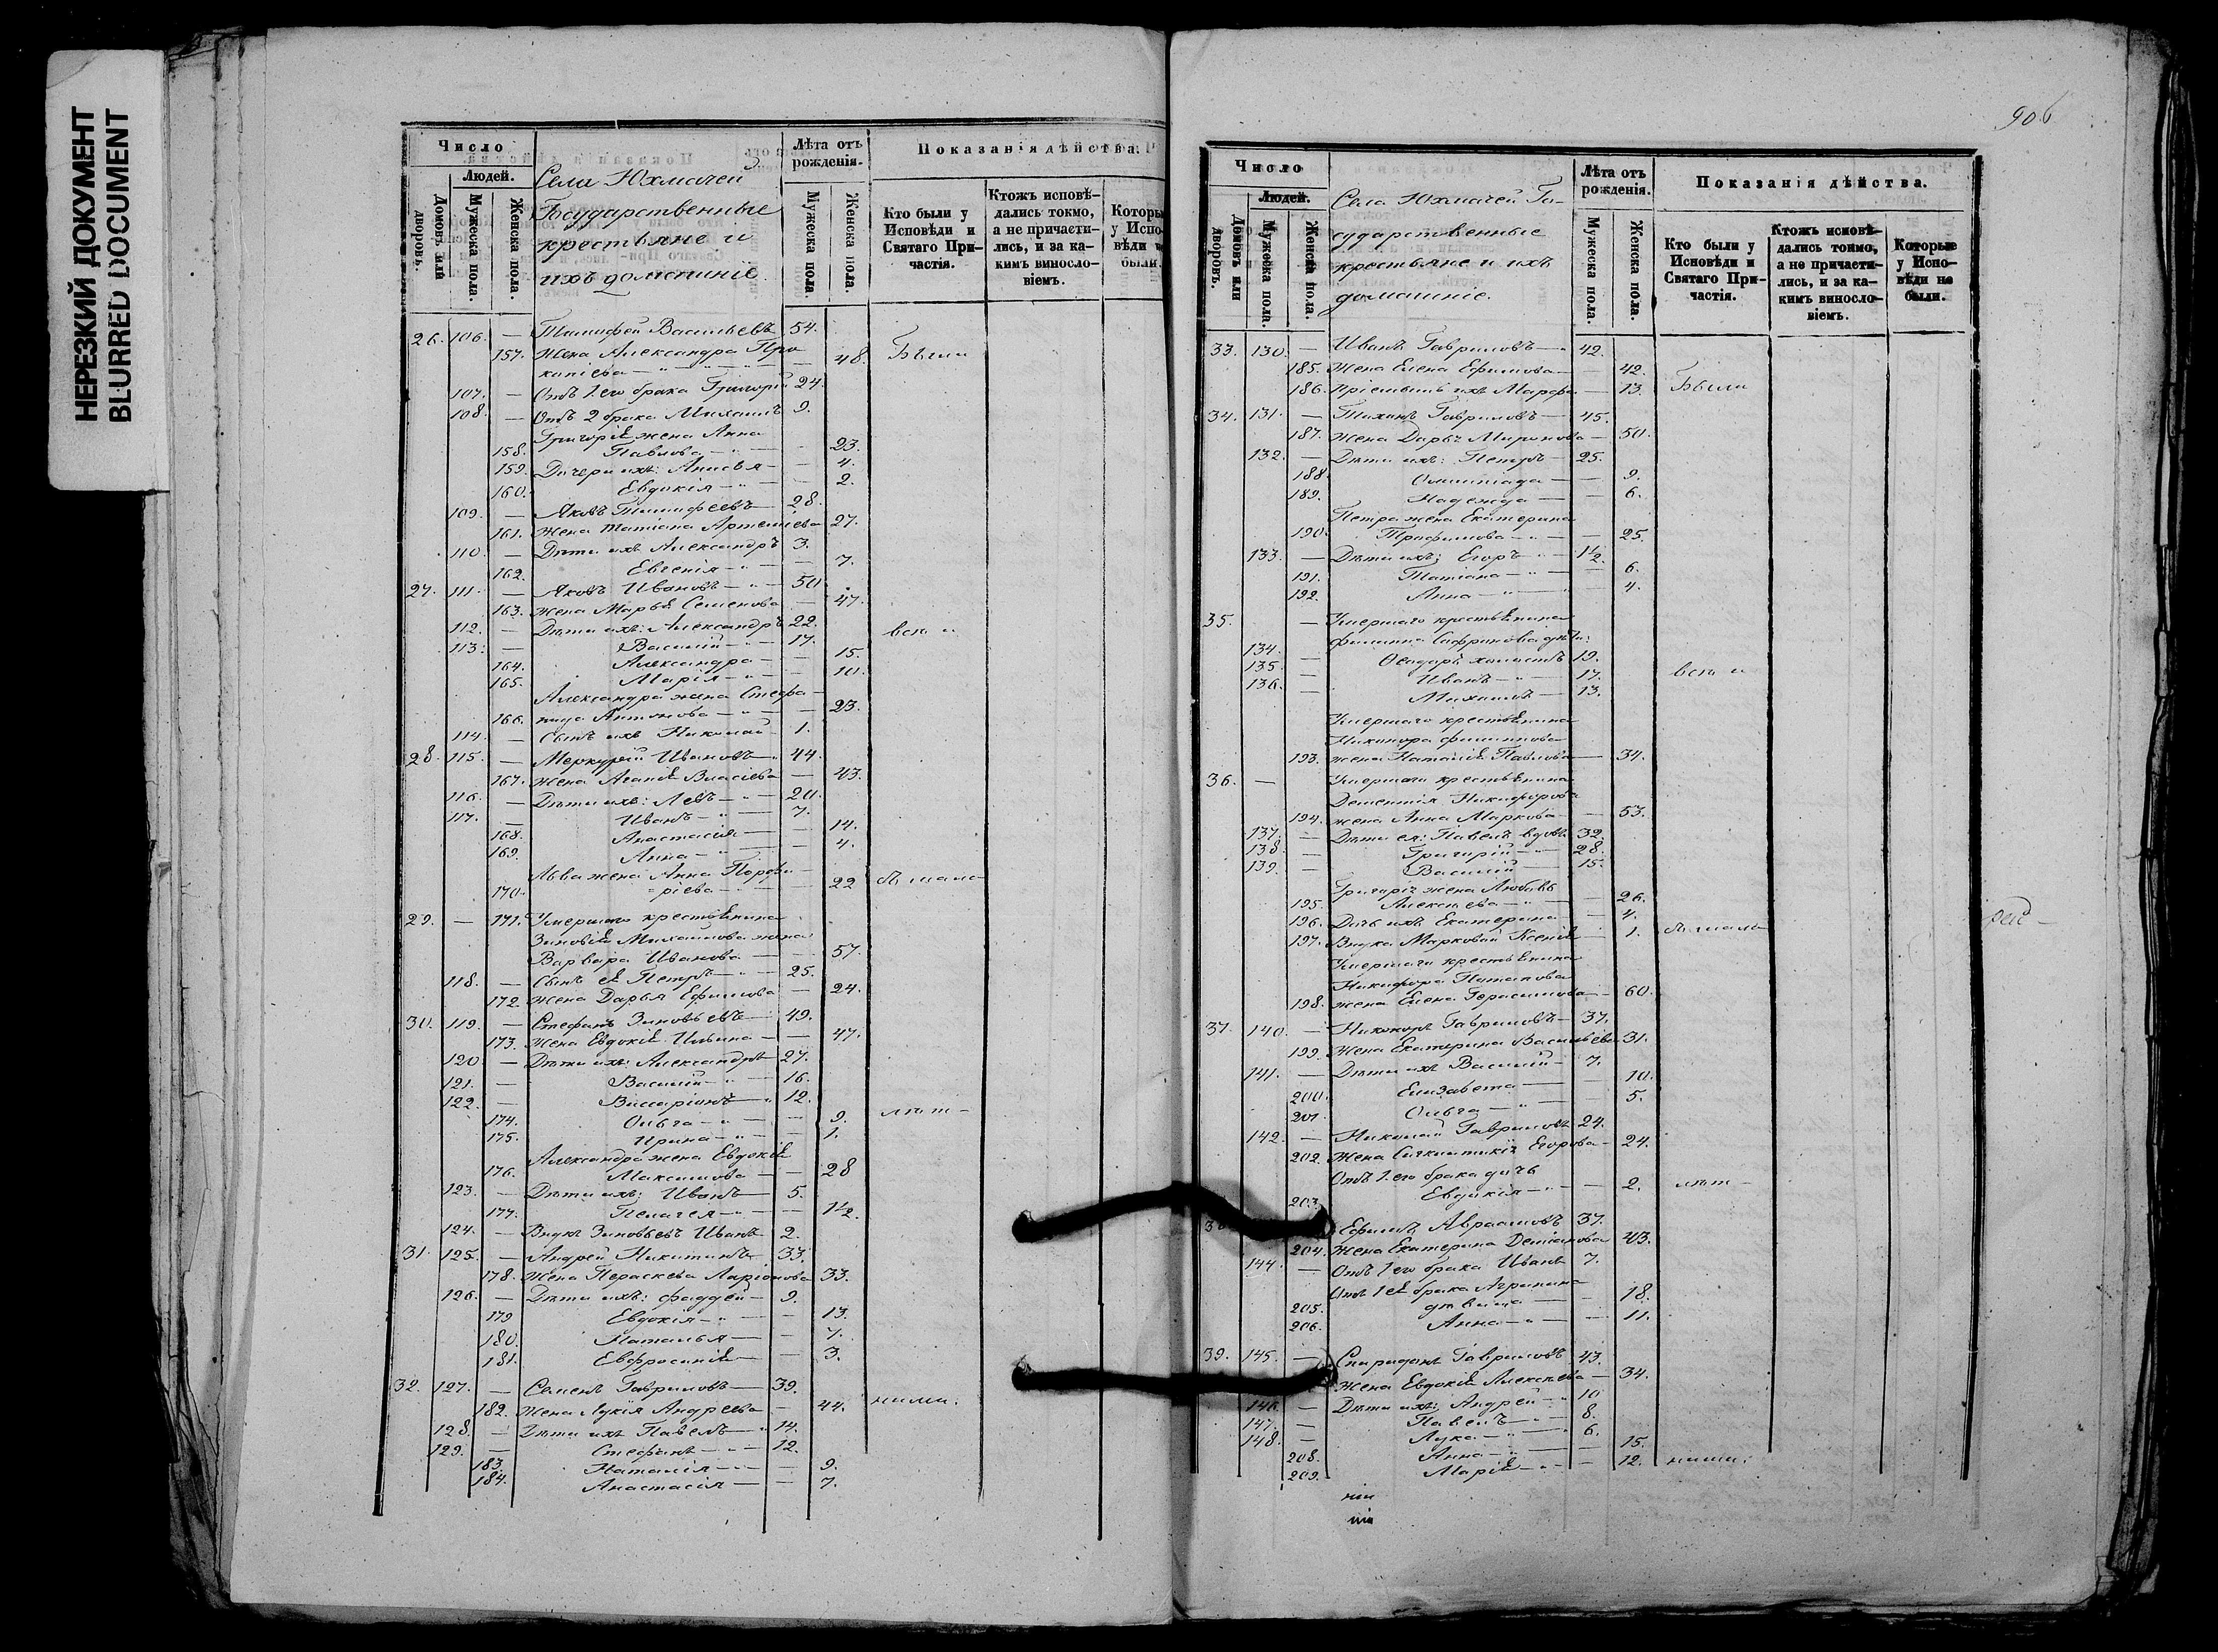 НЕРЕЗКИЙ ДОКУМЕНТ
BLURRED DOCUMENT
Число
Людей.
Домовъ или дворовъ.
Мужеска пола.
Женска пола.
Села Юхмачей
Государственные
крестьяне и
ихъ домашніе.
Лѣта отъ рожденія.
Мужеска пола.
Женска пола.
Показанія дѣйства.
Кто были у Исповѣди и Святаго Причастія.
Ктожъ исповѣдались токмо, а не причастились, и за какимъ винословіемъ.
Которы у Испо- вѣди не были.
26. 106. — Тимофей Васильевъ 54.
157. Жена Александра Про-
копіева — 48. Были
107. — Отъ 1-го брака Григорій 24.
108. — Отъ 2 брака Михаилъ 9.
Григорія жена Анна
158. Павлова — 23.
159. Дочери ихъ: Анисья — 4.
160. Евдокія — 2.
109. — Яковъ Тимофеевъ 28.
161. Жена Татіана Артеміева 27.
110. — Дѣти ихъ Александръ 3.
162. Евгенія — 7.
27. 111. — Яковъ Ивановъ — 50
163. Жена Марья Семенова — 47.
112. — Дѣти ихъ: Александръ 22.
113. — Василій — 17.
164. Александра — 15.
165. Марія — 10.
Александра жена Стефа-
166. нида Антонова — 23.
114. — Сынъ ихъ Николай 1.
28. 115. — Меркурій Ивановъ — 44.
167. Жена Агаѳія Власіева — 43.
116. — Дѣти ихъ: Левъ — 20.
117. — Иванъ — 7.
168. Анастасія — 14.
169. Анна — 4.
Льва жена Анна Порфи-
170. ріева — 22
29. — 171. Умершаго крестьянина
Зиновія Михайлова жена
Варвара Иванова — 57.
118. — Сынъ ея Петръ — 25.
172. Жена Дарья Ефимова — 24.
30. 119. — Стефанъ Зиновьевъ — 49.
173. Жена Евдокія Ильина — 47.
120. — Дѣти ихъ: Александръ — 27.
121. — Василій — 16.
122. — Виссаріонъ — 12.
174. Ольга — 9.
175. Ирина — 1.
Александра жена Евдокія
176. Максимова — 28
123. — Дѣти ихъ: Иванъ — 5.
177. Пелагея — 1/2.
124. — Внукъ Зиновьевъ Иванъ 2.
31. 125. — Андрей Никитинъ — 33.
178. Жена Параскева Ларіонова 33.
126. — Дѣти ихъ: Фаддей — 9.
179 Евдокія — 13.
180. Наталья — 7.
181. Евфросинія — 3.
32. 127. — Семенъ Гавриловъ — 39.
182. Жена Лукія Андреева — 44.
128. — Дѣти ихъ Павелъ — 14.
129. — Стефанъ — 12.
183. Наталія — 9.
184. Анастасія — 7.
906
Число
Людей.
Домовъ или дворовъ.
Мужеска пола.
Женска пола.
Села Юхмачей Го-
сударственные
крестьяне и ихъ
домашніе.
Лѣта отъ рожденія.
Мужеска пола.
Женска пола.
Показанія дѣйства.
Кто были у Исповѣди и Святаго Причастія.
Ктожъ исповѣдались токмо, а не причастились, и за какимъ винословіемъ.
Которые у Исповѣди не были.
33. 130. — Иванъ Гавриловъ — 42.
185. Жена Елена Ефимова — 42.
186. Пріемышъ ихъ Марѳа — 13. Были
34. 131. — Тихонъ Гавриловъ — 45.
187. Жена Дарья Миронова — 50.
132. — Дѣти ихъ: Петръ — 25.
188. Олимпіада — 9.
189. Надежда — 6.
Петра жена Екатерина
190. Трофимова — 25.
133. — Дѣти ихъ: Егоръ — 1/2.
191. Татіана — 6.
192. Анна — 4.
35. — Умершаго крестьянина
Филиппа Сафронова дѣти:
134. — Ѳеодоръ холостъ 19.
135. — Иванъ — 17.
136. — Михаилъ — 13.
Умершаго крестьянина
Никанора Филиппова
193. жена Наталія Павлова — 34.
36. — Умершаго крестьянина
Дементія Никифорова
194. жена Анна Маркова — 53.
137. — Дѣти ея: Павелъ вдовъ 32.
138. — Григорій — 28.
139. — Василій — 15.
Григорія жена Любовь
195. Алексѣева — 26.
196. Дочь ихъ Екатерина — 4.
197. Внука Марковой Ксенія — 1.
Умершаго крестьянина
Никифора Потапова
198. жена Елена Герасимова — 60.
37. 140. — Никаноръ Гавриловъ — 37.
199. Жена Екатерина Васильева 31.
141. — Дѣти ихъ Василій — 7.
200. Елизавета — 10.
201. Ольга — 5.
142. — Николай Гавриловъ 24.
202. Жена Егорова — 24.
Отъ 1-го брака дочь
203. Евдокія — 2.
Ефимъ Авраамовъ 37.
204. Жена Екатерина Деміанова 43.
144. — Отъ 1-го брака Иванъ 7.
Отъ 1-ея брака Агрипина
205. дѣвица — 18.
206. Анна — 11.
39. 145. — Спиридонъ Гавриловъ 43.
Жена Евдокія Алексѣева — 34.
146. — Дѣти ихъ: Андрей — 10
147. — Павелъ — 8.
148. — Лука — 6.
208. Анна — 15.
209. Марія — 12.